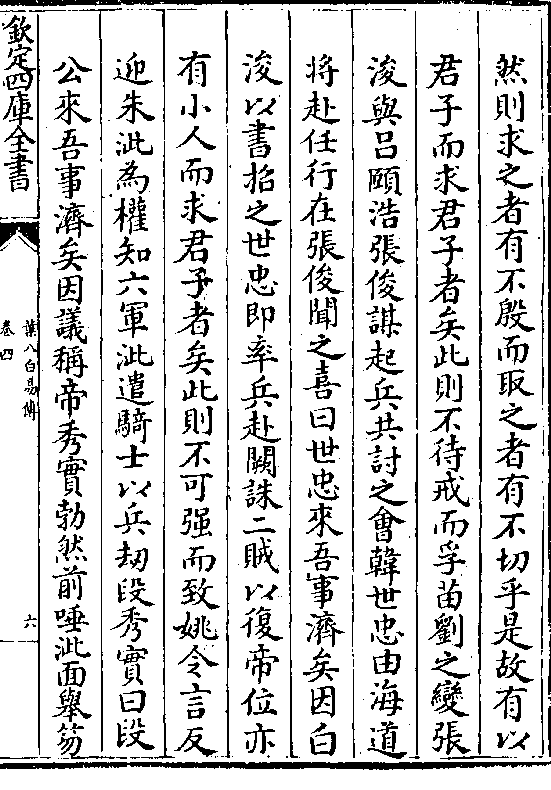 然則求之者有不殷而取之者有不切乎是故有以
君子而求君子者矣此則不待戒而孚苗劉之變張
浚與吕頤浩張俊謀起兵共討之會韓世忠由海道
将赴任行在張俊聞之喜曰世忠來吾事濟矣因白
浚以書招之世忠即率兵赴闕誅二賊以復帝位亦
有小人而求君子者矣此則不可强而致姚令言反
迎朱泚為權知六軍泚遣騎士以兵刼段秀實曰段
公來吾事濟矣因議稱帝秀實勃然前唾泚面舉笏
欽定四庫全書
葉八白易傳
卷四
六